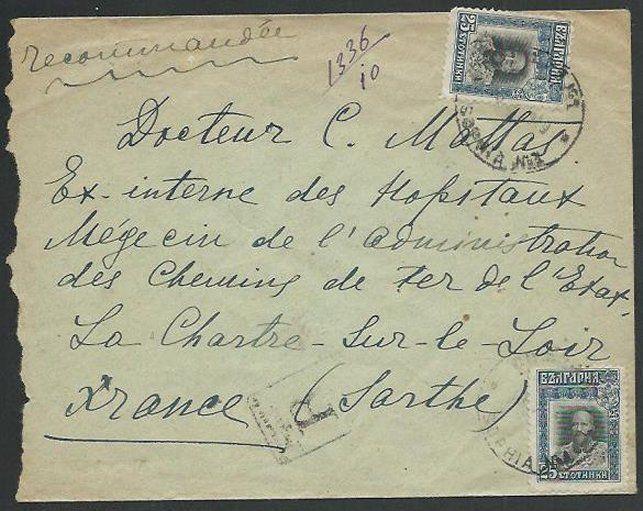 recommandée
1336
10
БЪЛГАРИЯ
25 СТОТИНКИ 25
Docteur C. Mattas
Ex-interne des Hopitaux
Mégecin de l'administration
des Chemins de Fer de l'Etat,
La Chartre-Sur-le-Loir
France (Sarthe)
БЪЛГАРИЯ
25 СТОТИНКИ